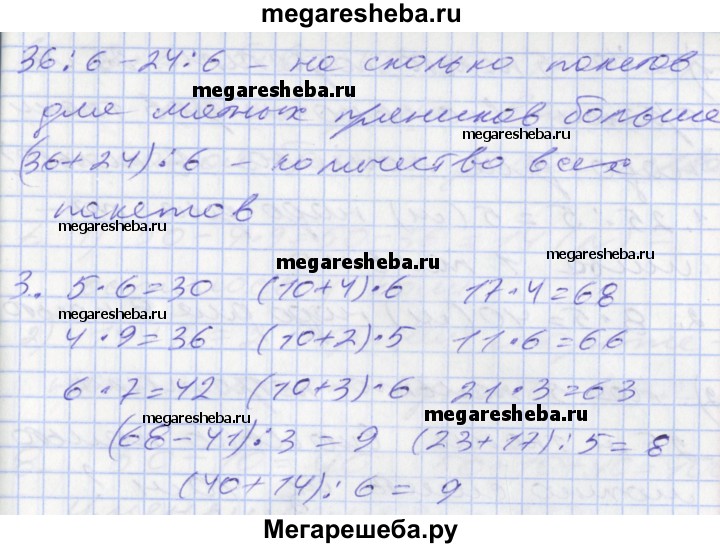 megaresheba.ru
36:6-24:6 - на сколько пакетов
megaresheba.ru
для мятных пряников больше
megaresheba.ru
(36+24):6 - количество всех
пакетов
megaresheba.ru
megaresheba.ru
megaresheba.ru
3. 5·6=30 (10+4)·6 17·4=68
megaresheba.ru
megaresheba.ru
4·9=36 (10+2)·5 11·6=66
6·7=42 (10+3)·6 21·3=63
megaresheba.ru
megaresheba.ru
(68-41):3=9 (23+17):5=8
(40+14):6=9
Мегарешеба.ру